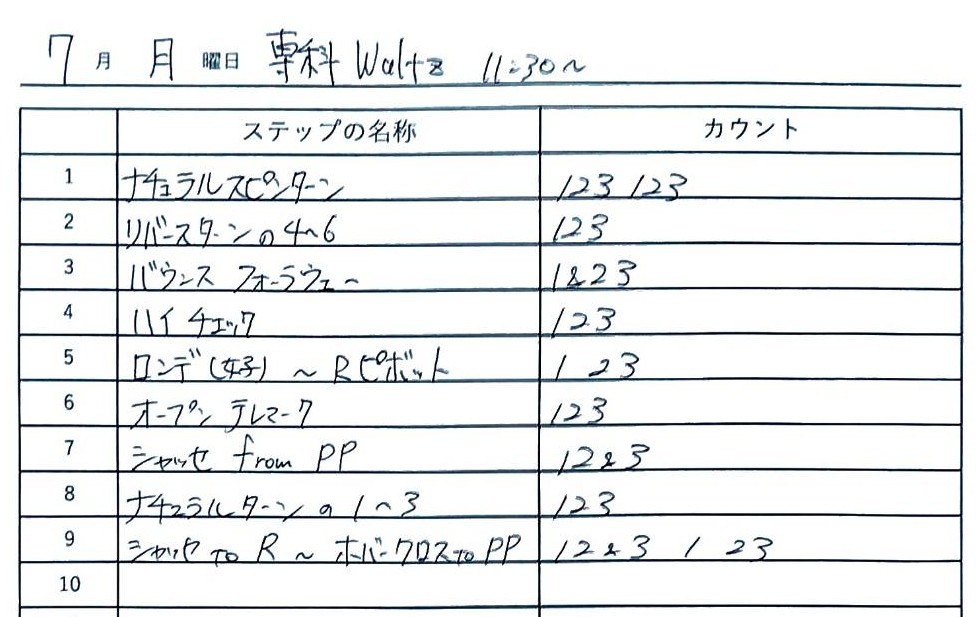 7月 月 曜日 専科 Waltz 11:30～
ステップの名称 カウント
1 ナチュラルスピンターン 123 123
2 リバースターンの4~6 123
3 バウンス フォーラウェー 1&23
4 ハイチェック 123
5 ロンデ(女子) ～ Rピボット 1 23
6 オープン テレマーク 123
7 シャッセ from PP 12&3
8 ナチュラルターンの1~3 123
9 シャッセ to R ～ ホバークロス to PP 12&3 1 23
10